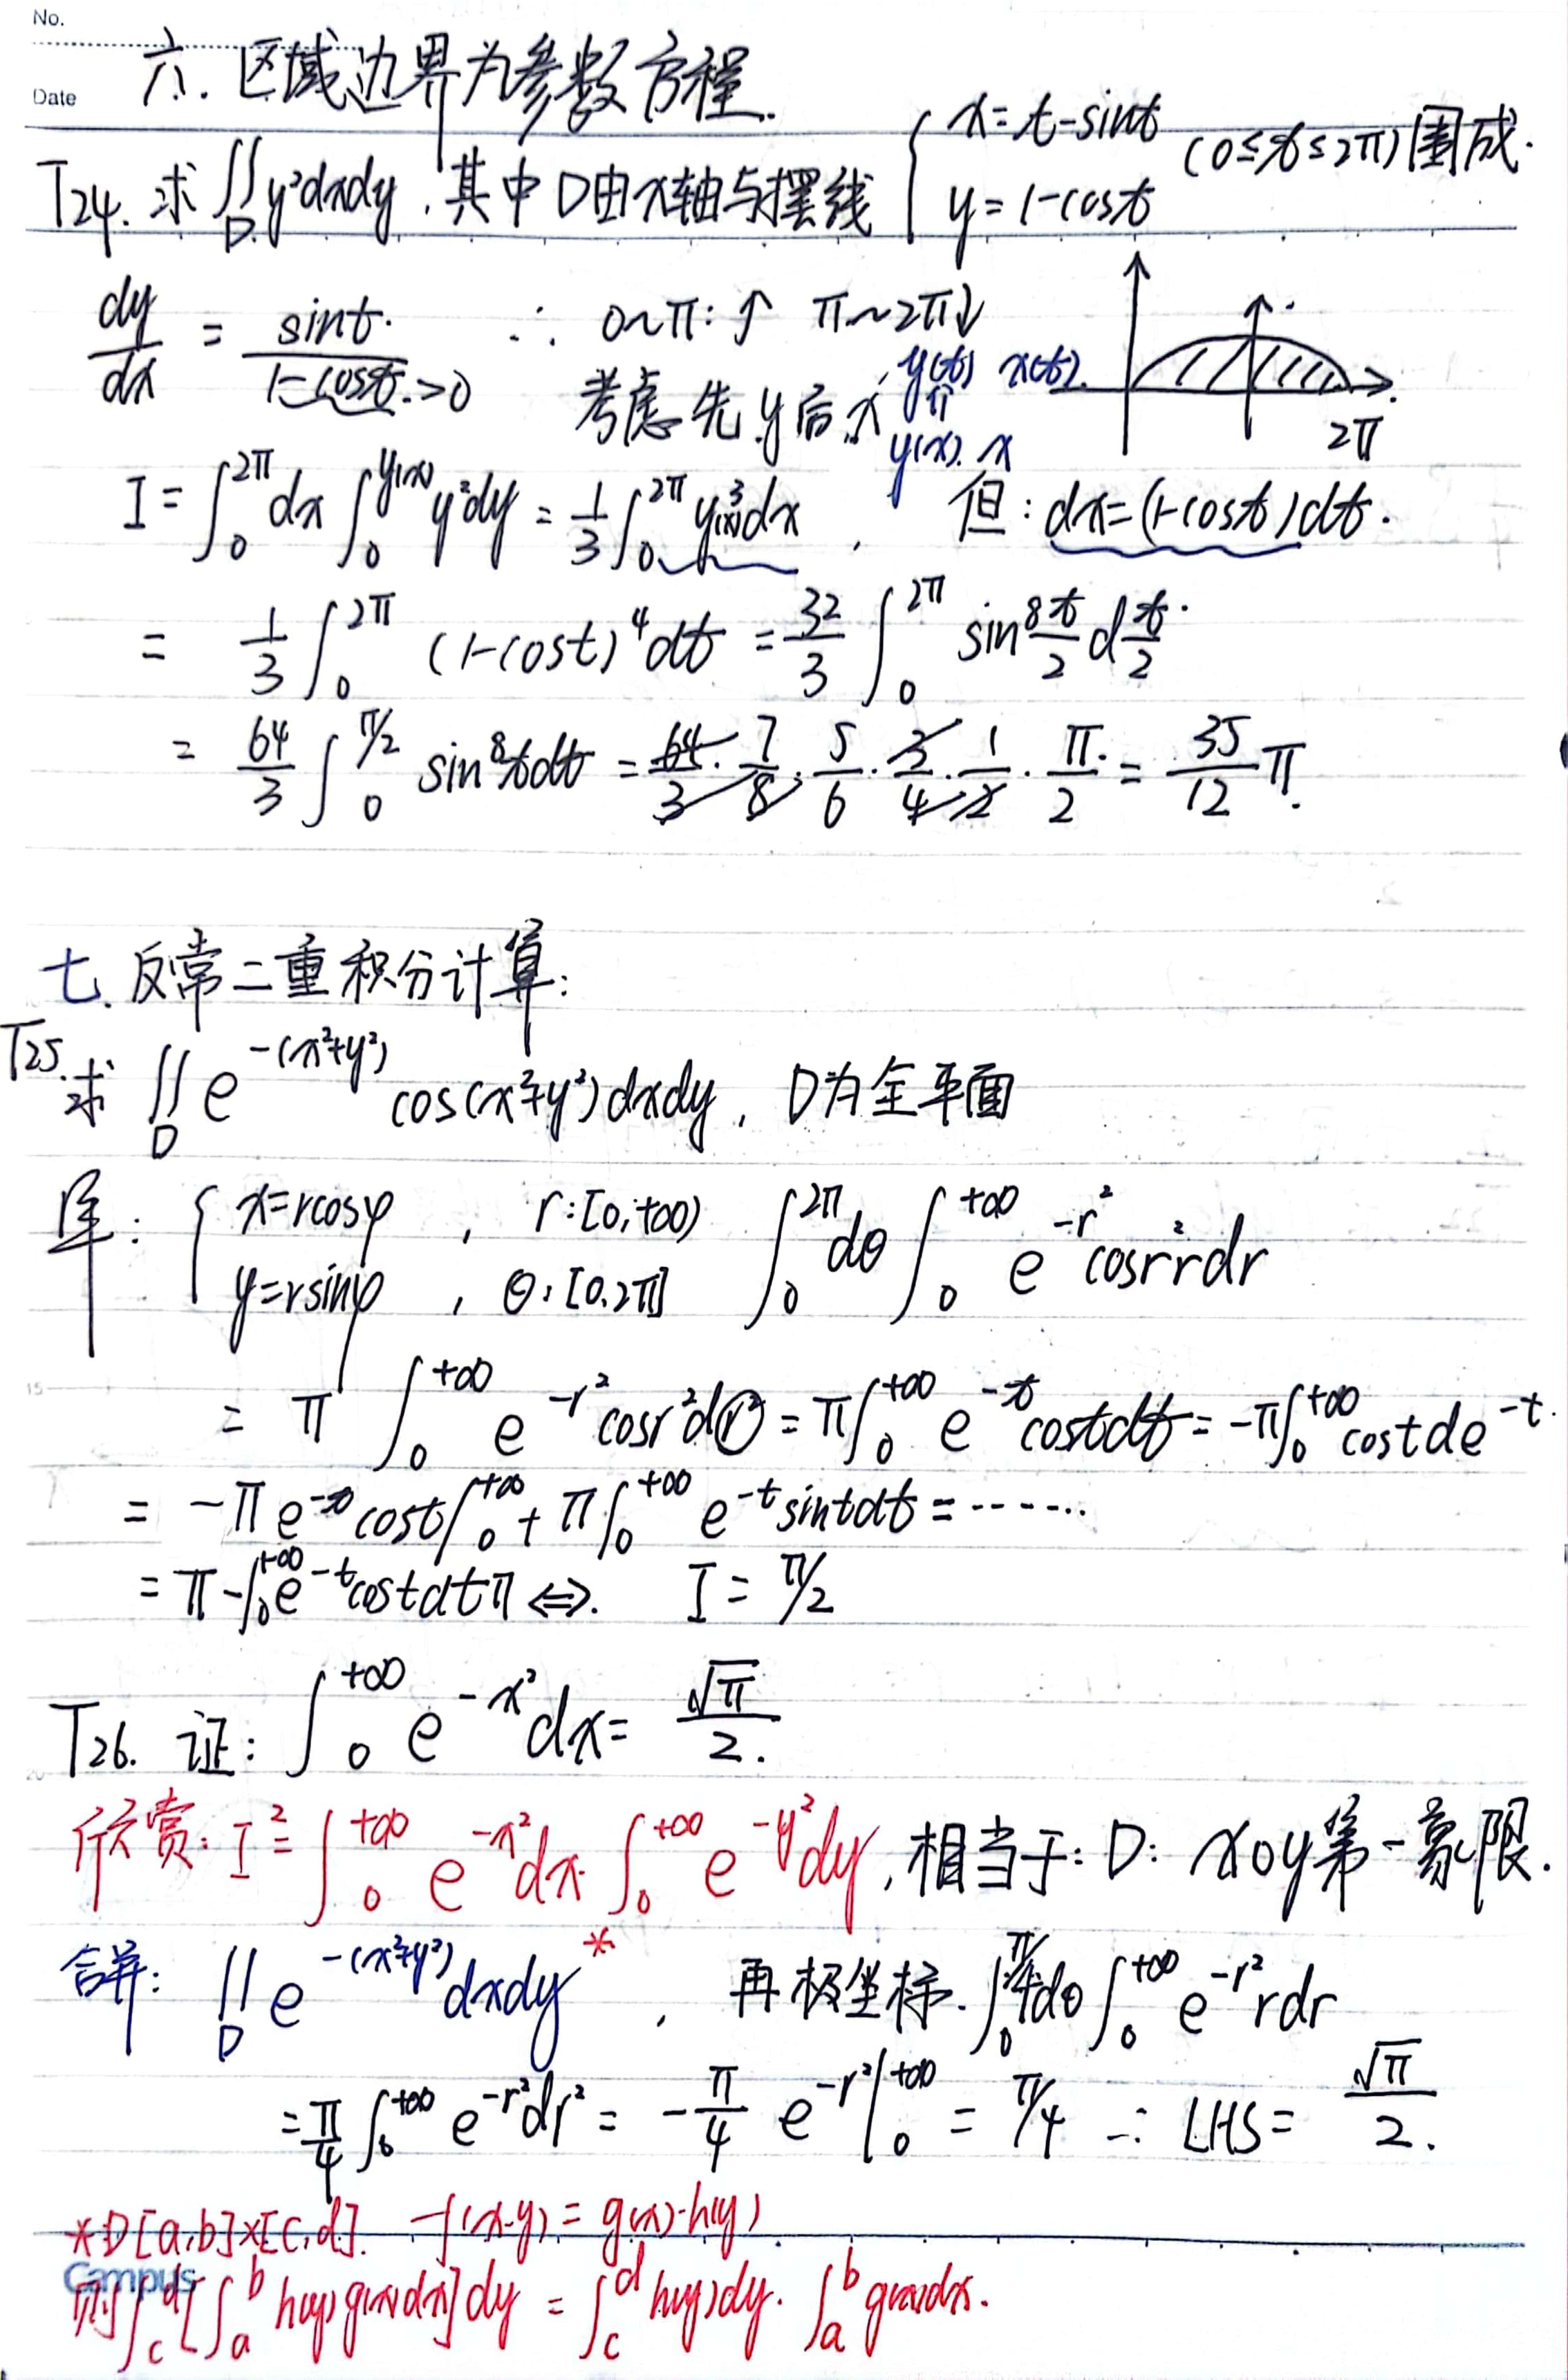 No.
Date
六. 区域边界为参数方程.
T24. 求 ∬_D y²dxdy, 其中D由x轴与摆线 { x=t-sint  y=1-cost (0≤t≤2π) 围成.
dy/dx = sint/(1-cost)>0 ∴ 0~π: ↑ π~2π↓
考虑先y后x y(t) x(t)
⇑
y(x). x
2π
I = ∫_0^{2π} dx ∫_0^{y(x)} y²dy = 1/3 ∫_0^{2π} y³(x)dx , 但: dx=(1-cost)dt.
= 1/3 ∫_0^{2π} (1-cost)⁴dt = 32/3 ∫_0^{2π} sin⁸ t/2 d t/2.
= 64/3 ∫_0^{π/2} sin⁸tdt = 64/3 · 7/8 · 5/6 · 3/4 · 1/2 · π/2 = 35/12 π.
七. 反常二重积分计算:
T25. 求 ∬_D e^{-(x²+y²)} cos(x²+y²)dxdy, D为全平面
解: { x=rcosφ , r:[0,+∞)  y=rsinφ , θ:[0,2π] ∫_0^{2π} dθ ∫_0^{+∞} e^{-r²} cosr² rdr
= π ∫_0^{+∞} e^{-r²} cosr²d(r²) = π∫_0^{+∞} e^{-t} costdt = -π∫_0^{+∞} costde^{-t}.
= -πe^{-t}cost|_0^{+∞} + π∫_0^{+∞} e^{-t}sintdt = ······
= π-∫_0^{+∞} e^{-t}costdtπ ⇔. I = π/2
T26. 证: ∫_0^{+∞} e^{-x²}dx = √π/2.
欣赏: I² = ∫_0^{+∞} e^{-x²}dx · ∫_0^{+∞} e^{-y²}dy, 相当于: D: xoy第一象限.
合并: ∬_D e^{-(x²+y²)}dxdy * , 再极坐标. ∫_0^{π/2} dθ ∫_0^{+∞} e^{-r²}rdr
= π/4 ∫_0^{+∞} e^{-r²}dr² = -π/4 e^{-r²}|_0^{+∞} = π/4 ∴ LHS = √π/2.
*D[a,b]×[c,d]. f(x·y) = g(x)·h(y)
Campus
则 ∫_c^d [∫_a^b h(y)g(x)dx]dy = ∫_c^d h(y)dy · ∫_a^b g(x)dx.